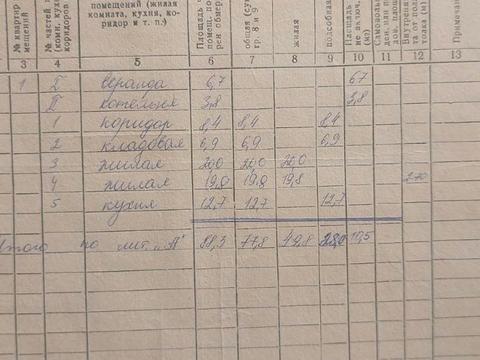 № квартир
№ частей
помещений (жилая
комната, кухня, ко-
ридор и т. п.)
общая (су
гр. 8 и 9
жилая
подсобная
Площадь
не включ.
(м)
Примечан
3 4 5 6 7 8 9 10 11 12 13
1 I веранда 6,7 6,7
II котельня 3,8 3,8
1 коридор 8,4 8,4 8,4
2 кладовая 6,9 6,9 6,9
3 жилая 30,0 30,0 30,0
4 жилая 19,8 19,8 19,8 2.70
5 кухня 12,7 12,7 12,7
Итого по лит. „А" 88,3 77,8 49,8 28,0 10,5